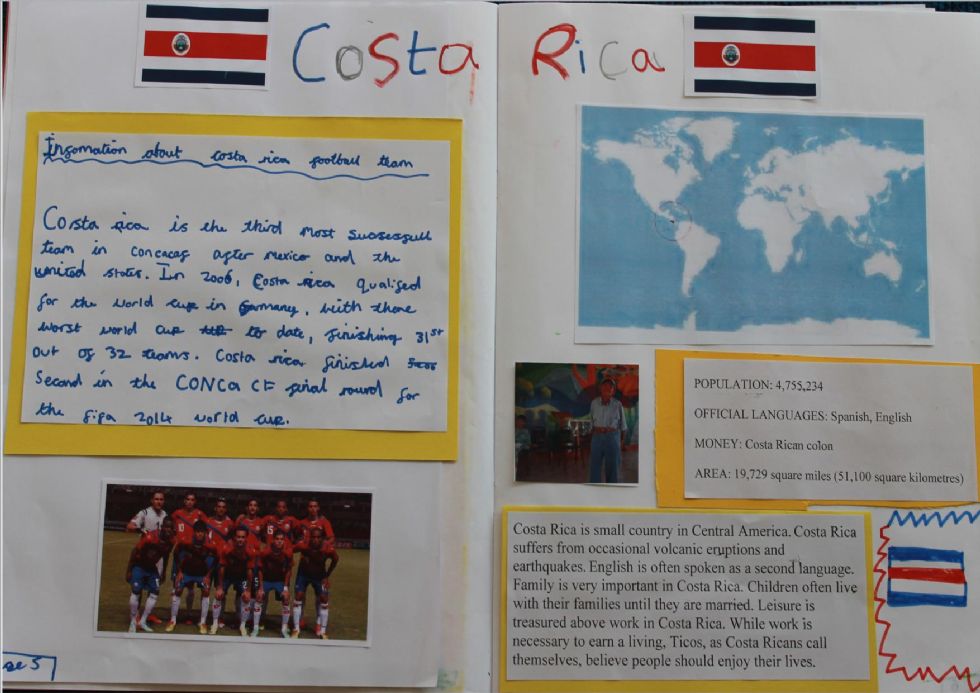 Costa Rica
Infomation about costa rica football team
Costa rica is the third most sucsessfull
team in concacaf after mexico and the
united states. In 2006, Costa rica qualifed
for the world cup in Germany, with there
worst world cup to date, finishing 31st
out of 32 teams. Costa rica finished
Second in the CONCaCF final round for
the fifa 2014 world cup.
POPULATION: 4,755,234
OFFICIAL LANGUAGES: Spanish, English
MONEY: Costa Rican colon
AREA: 19,729 square miles (51,100 square kilometres)
Costa Rica is small country in Central America. Costa Rica
suffers from occasional volcanic eruptions and
earthquakes. English is often spoken as a second language.
Family is very important in Costa Rica. Children often live
with their families until they are married. Leisure is
treasured above work in Costa Rica. While work is
necessary to earn a living, Ticos, as Costa Ricans call
themselves, believe people should enjoy their lives.